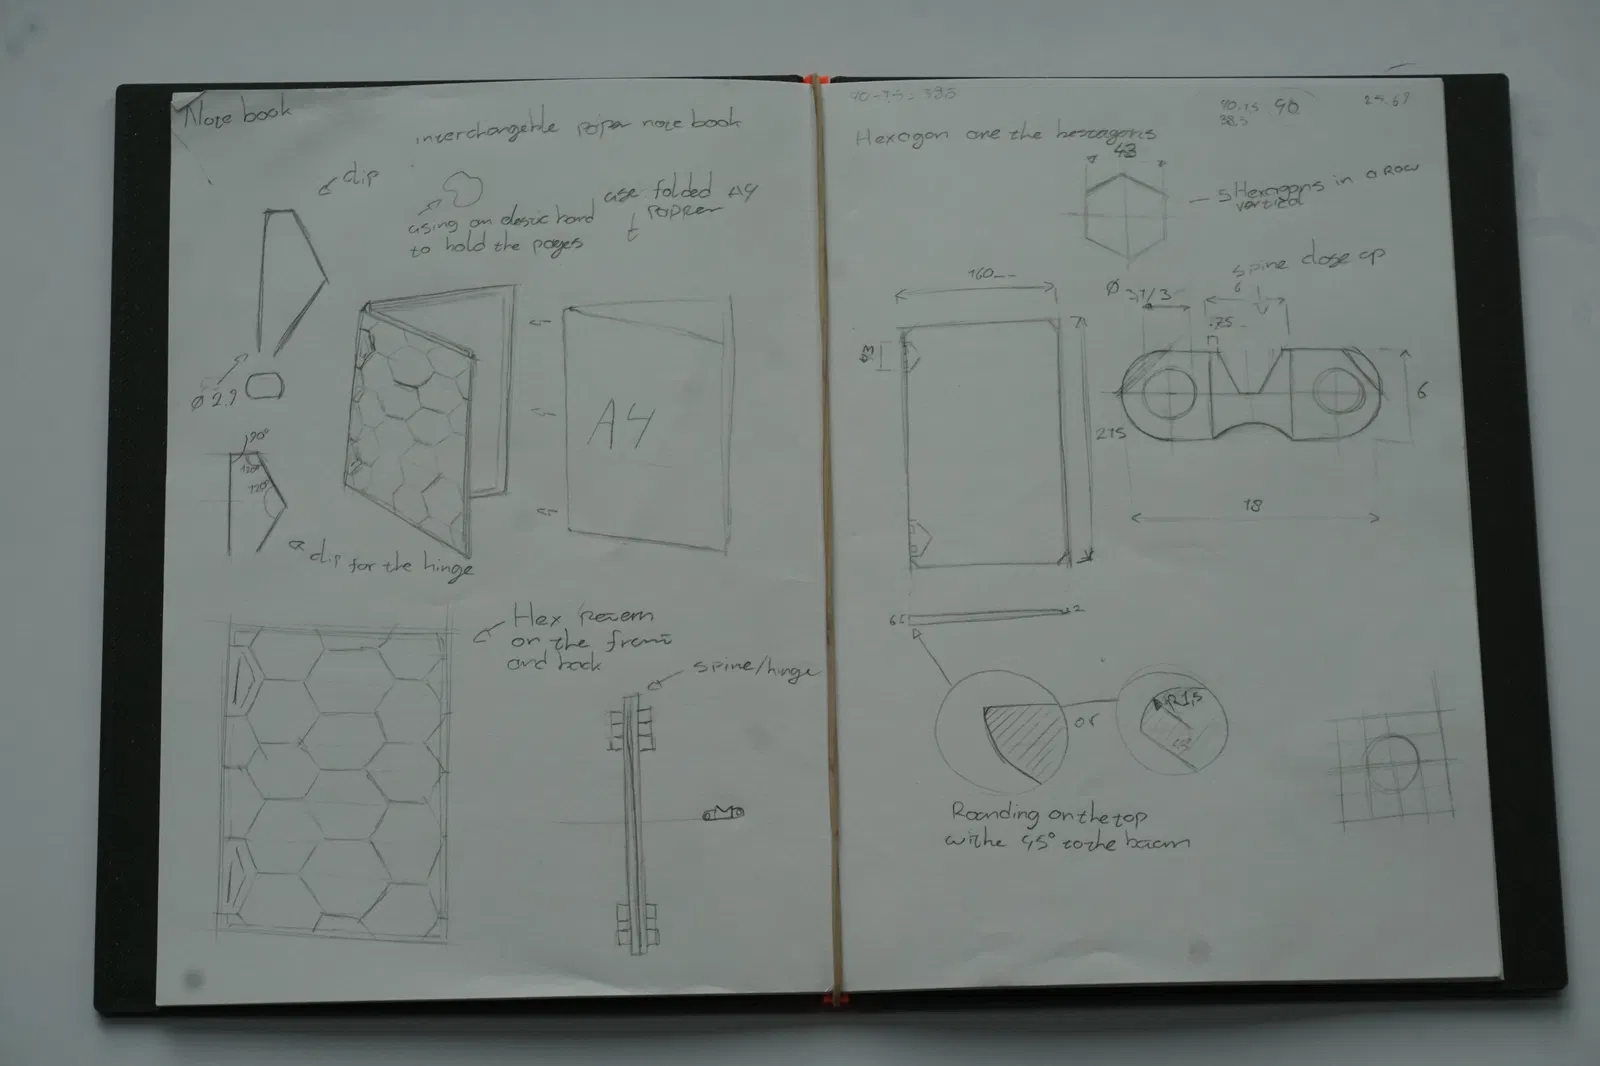 Notebook
interchangeble paper notebook
clip
using an elastic band
to hold the pages
use folded A4
paper
Ø 2.9
A4
90°
120°
120°
clip for the hinge
Hex patern
on the front
and back
spine/hinge
Hexagon are the hexagons
43
5 Hexagons in a row
vertical
spine close up
160
Ø
6
.75
43
215
6
18
6
2
or
R1,5
Rounding on the top
withe 45° to the bacm